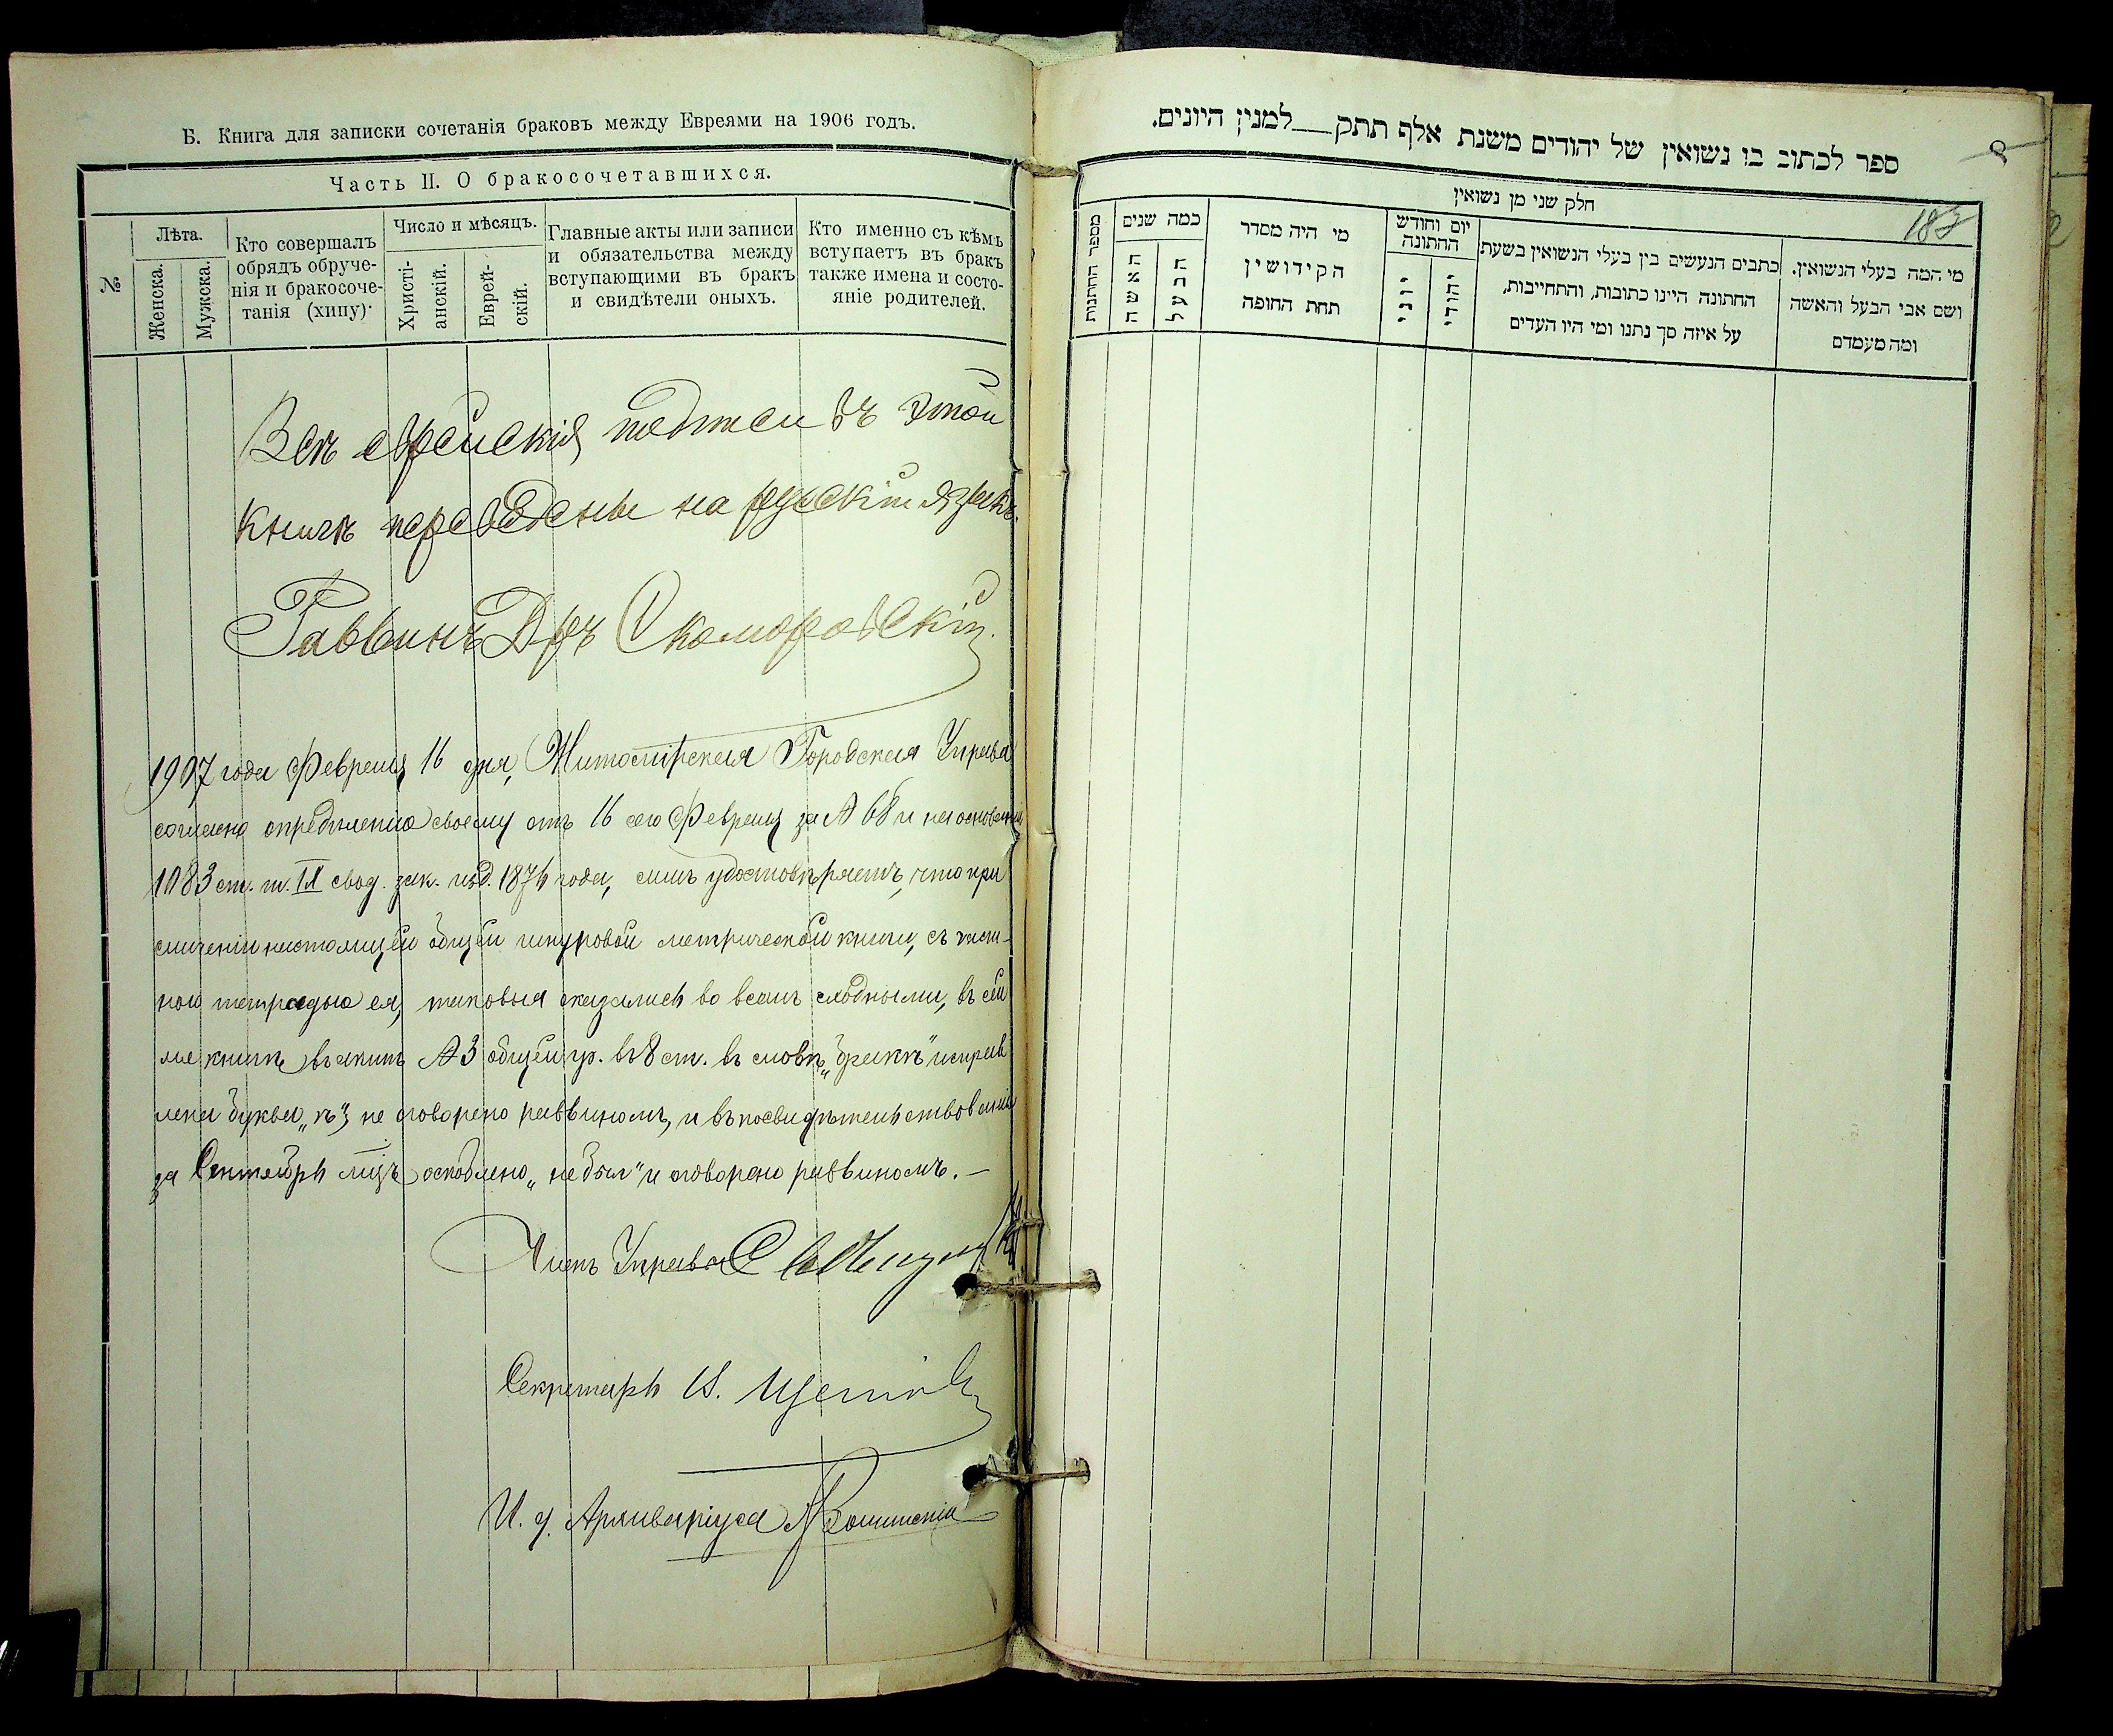 Б. Книга для записки сочетанія браковъ между Евреями на 1906 годъ.
Часть II. О бракосочетавшихся.
№
Лѣта.
Женска.
Мужска.
Кто совершалъ
обрядъ обруче-
нія и бракосоче-
танія (хипу).
Число и мѣсяцъ.
Христі-
анскій.
Еврей-
скій.
Главные акты или записи
и обязательства между
вступающими въ бракъ
и свидѣтели оныхъ.
Кто именно съ кѣмъ
вступаетъ въ бракъ
также имена и состо-
яніе родителей.
Всѣ еврейскія подписи въ этой
книгѣ переведены на русскій языкъ.
Раввинъ Дръ Скоморовскій.
1907 года Февраля 16 дня, Житомірская Городская Управа
согласно опредѣленію своему отъ 16 сего Февраля за № 68 и на основаніи
1083 ст. т. IX свод. зак. изд. 1876 года, симъ удостовѣряетъ, что при
сличеніи настоящей общей шнуровой метрической книги, съ част-
ною тетрадью ея, таковыя оказались во всемъ сходными, въ сей
же книгѣ въ актѣ № 3 общей гр. въ 8 ст. въ словѣ „бракѣ" исправ
лена буква „ѣ", не оговорено раввиномъ, и въ посвидѣтельствованіи
за Сентябрь мцъ оскоблено „не был" и оговорено раввиномъ. —
Членъ Управы
Секретарь И.
И. д. Архиваріуса
ספר לכתוב בו נשואין של יהודים משנת אלף תתק__למנין היונים.
182
חלק שני מן נשואין
מספר החתונות
כמה שנים
האשה
הבעל
מי היה מסדר
הקידושין
תחת החופה
יום וחודש
החתונה
יוני
יהודי
כתבים הנעשים בין בעלי הנשואין בשעת
החתונה היינו כתובות, והתחייבות,
על איזה סך נתנו ומי היו העדים
מי המה בעלי הנשואין.
ושם אבי הבעל והאשה
ומה מעמדם